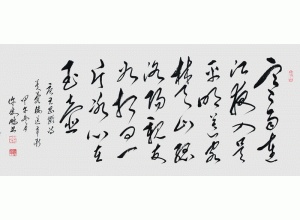 寒雨連
江夜入吴
平明送客
楚山孤
洛陽親友
如相问一
片冰心在
玉壶
唐王昌龄诗
芙蓉楼送辛渐
甲午